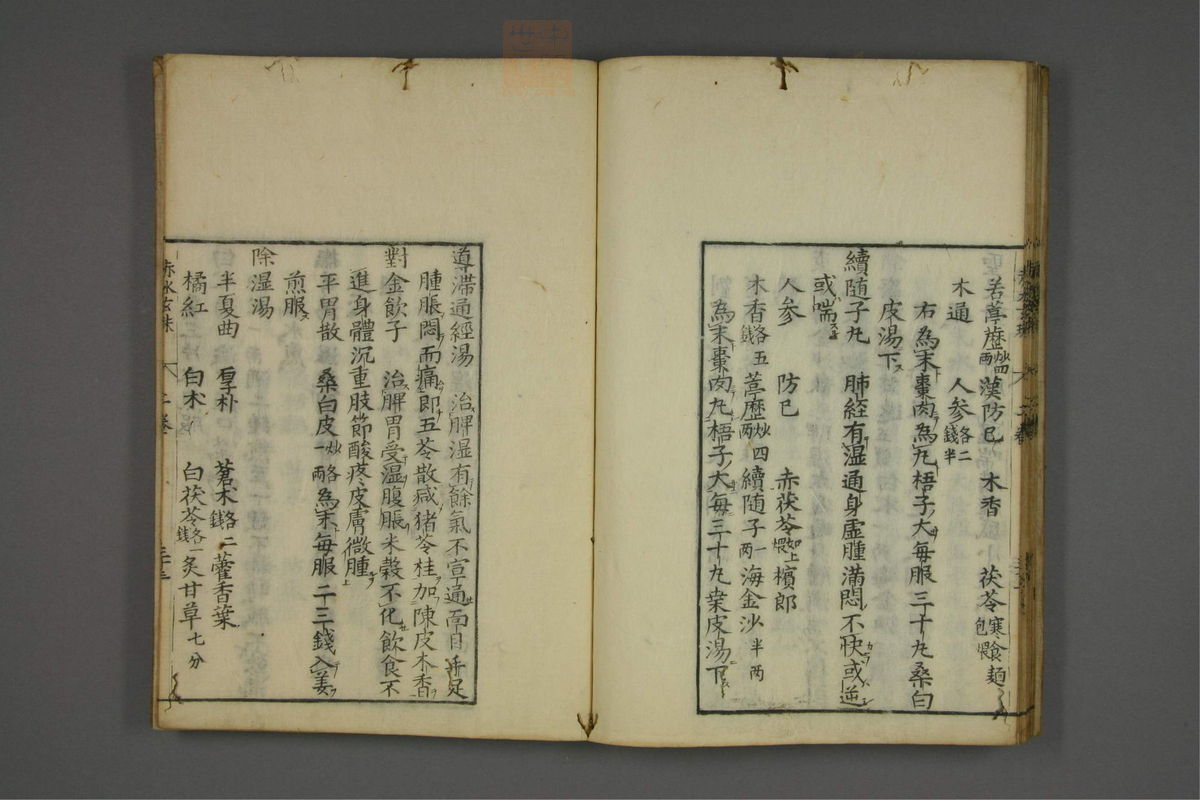 苦葶藶炒四兩漢防已 木香 茯苓寒食麺包煨
木通 人参各二錢半
右為末棗肉為丸梧子大每服三十丸桑白
皮湯下
續随子丸 肺経有湿通身虚腫滿悶不快或逆
或喘
人参 防已 赤茯苓如上煨檳郎
木香各五錢葶歷炒四兩續随子一兩海金沙半两
為末棗肉丸梧子大每三十丸桒皮湯下
導滞通經湯 治脾湿有餘氣不宣通面目手足
腫脹悶而痛即五苓散减猪苓桂加陳皮木香
對金飲子 治脾胃受湿腹脹米穀不化飲食不
進身體沉重肢節酸疼皮膚微腫
平胃散 桑白皮炒各一兩為末每服二三錢入姜
煎服
除湿湯
半夏曲 厚朴 蒼木各二錢藿香葉
橘紅 白木 白茯苓各一錢炙甘草七分
赤水玄珠 二卷